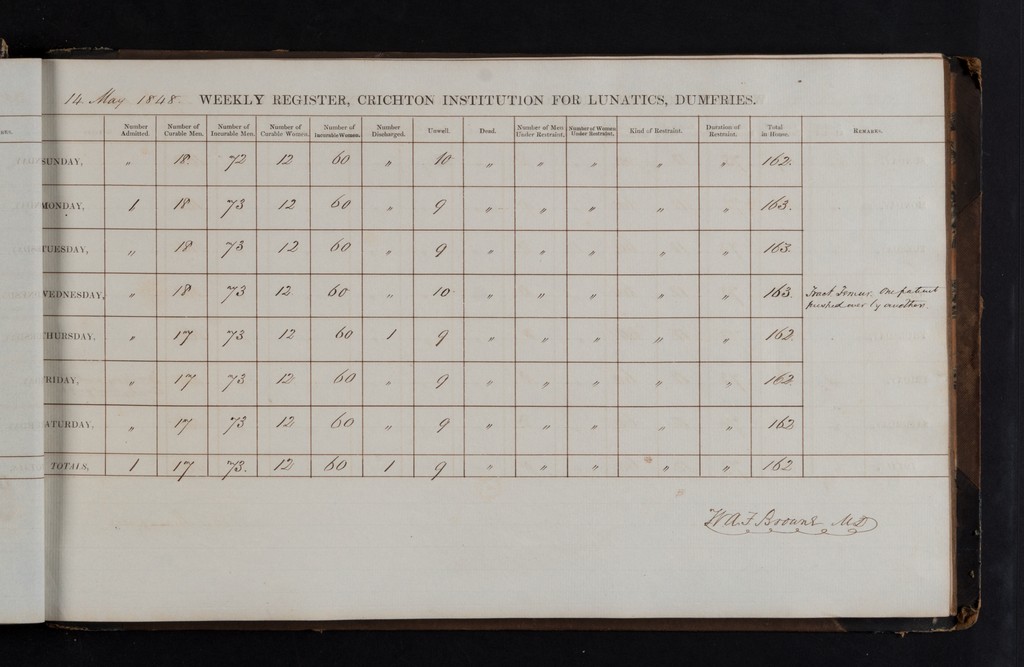 14 May 1848 WEEKLY REGISTER, CRICHTON INSTITUTION FOR LUNATICS, DUMFRIES.
Number Admitted. Number of Curable Men. Number of Incurable Men. Number of Curable Women. Number of Incurable Women. Number Discharged. Unwell. Dead. Number of Men Under Restraint. Number of Women Under Restraint. Kind of Restraint. Duration of Restraint. Total in House. REMARKS.
SUNDAY, " 18. 72 12 60 " 10 " " " " " 162.
MONDAY, 1 18 73 12 60 " 9 " " " " " 163.
TUESDAY, " 18 73 12 60 " 9 " " " " " 163.
WEDNESDAY, " 18 73 12 60 " 10 " " " " " 163. Fract Femur. One patient
pushed over by another.
THURSDAY, " 17 73 12 60 1 9 " " " " " 162.
FRIDAY, " 17 73 12 60 " 9 " " " " " 162.
SATURDAY, " 17 73 12 60 " 9 " " " " " 162
TOTALS, 1 17 73. 12 60 1 9 " " " " " 162
W A F Browne MD